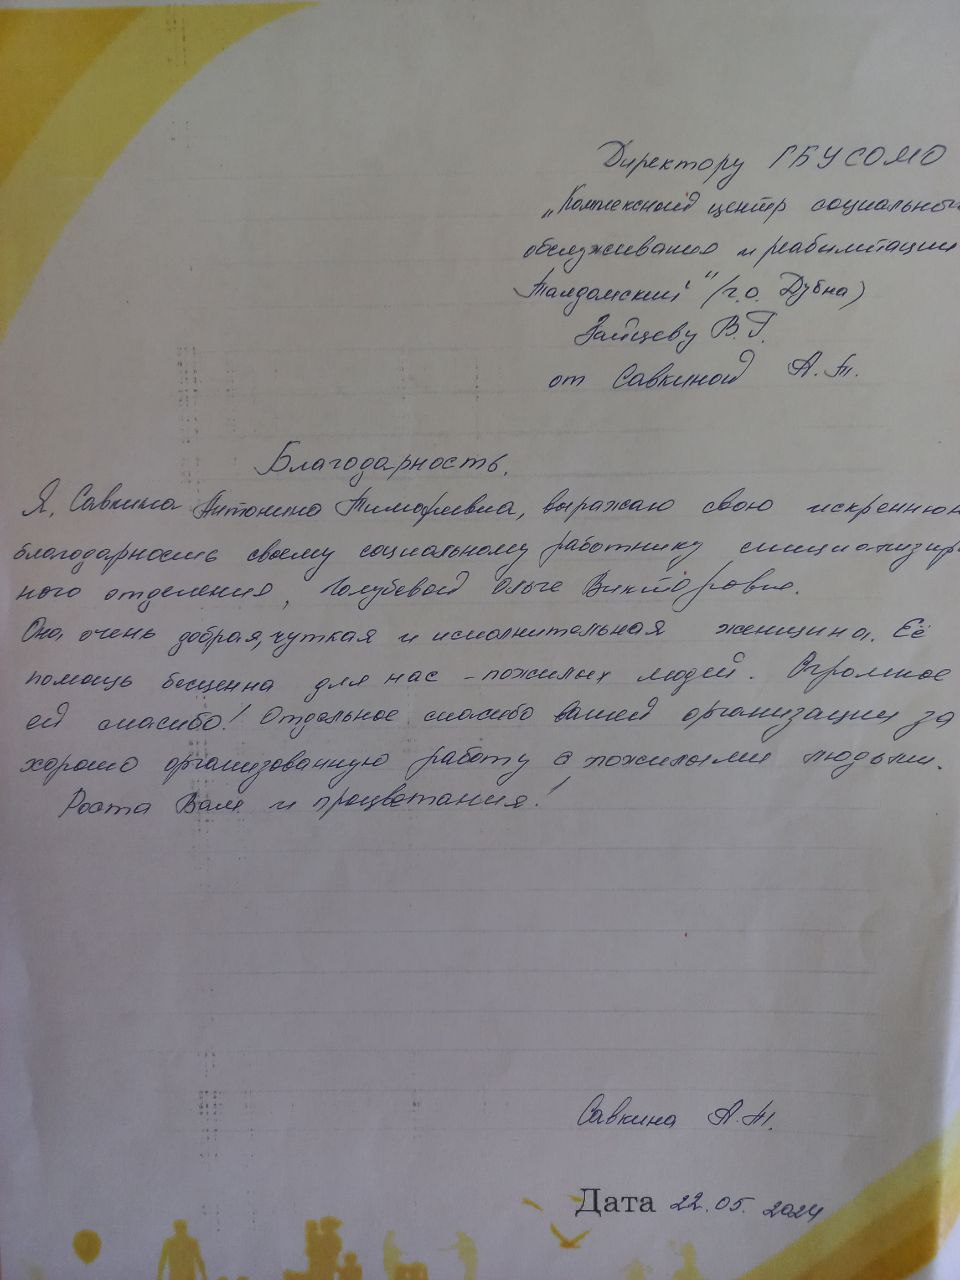 Директору ГБУСОМО
„Комплексный центр социального
обслуживания и реабилитации
Талдомский" (г.о. Дубна)
Зайцеву В.Г.
от Савкиной А.Т.
Благодарность.
Я, Савкина Антонина Тимофеевна, выражаю свою искреннюю
благодарность своему социальному работнику
ного отделения, Голубевой Ольге Викторовне.
Она очень добрая, чуткая и исполнительная женщина. Её
помощь бесценна для нас - пожилых людей. Огромное
ей спасибо! Отдельное спасибо вашей организации за
хорошо организованную работу с пожилыми людьми.
Роста Вам и процветания!
Савкина А.Т.
Дата 22.05.2024